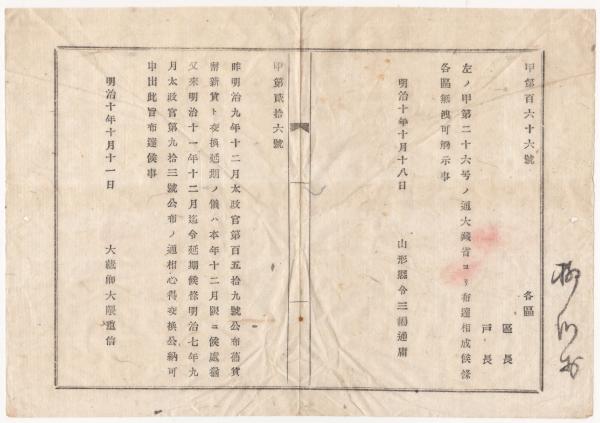 甲第百六十六號
各區
區長
戸長
左ノ甲第二十六号ノ通大藏省ヨリ布達相成候條
各區無洩可觸示事
明治十年十月十八日
山形縣令三島通庸
甲第貳拾六號
昨明治九年十二月太政官第百五拾九號公布舊貨
幣新貨ト交換延期ノ儀ハ本年十二月限ニ候處猶
又來明治十一年十二月迄令延期候條明治七年九
月太政官第九拾三號公布ノ通相心得交換公納可
申出此旨布達候事
明治十年十月十一日
大藏卿大隈重信
柳川村